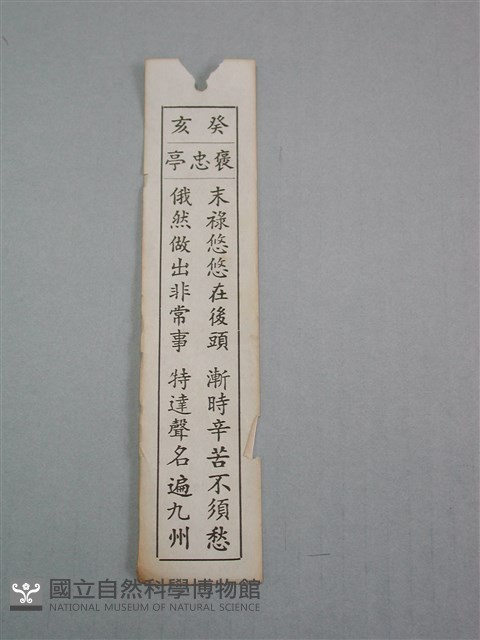 癸亥
褒忠亭
末祿悠悠在後頭 漸時辛苦不須愁
俄然做出非常事 特達聲名遍九州
國立自然科學博物館
NATIONAL MUSEUM OF NATURAL SCIENCE